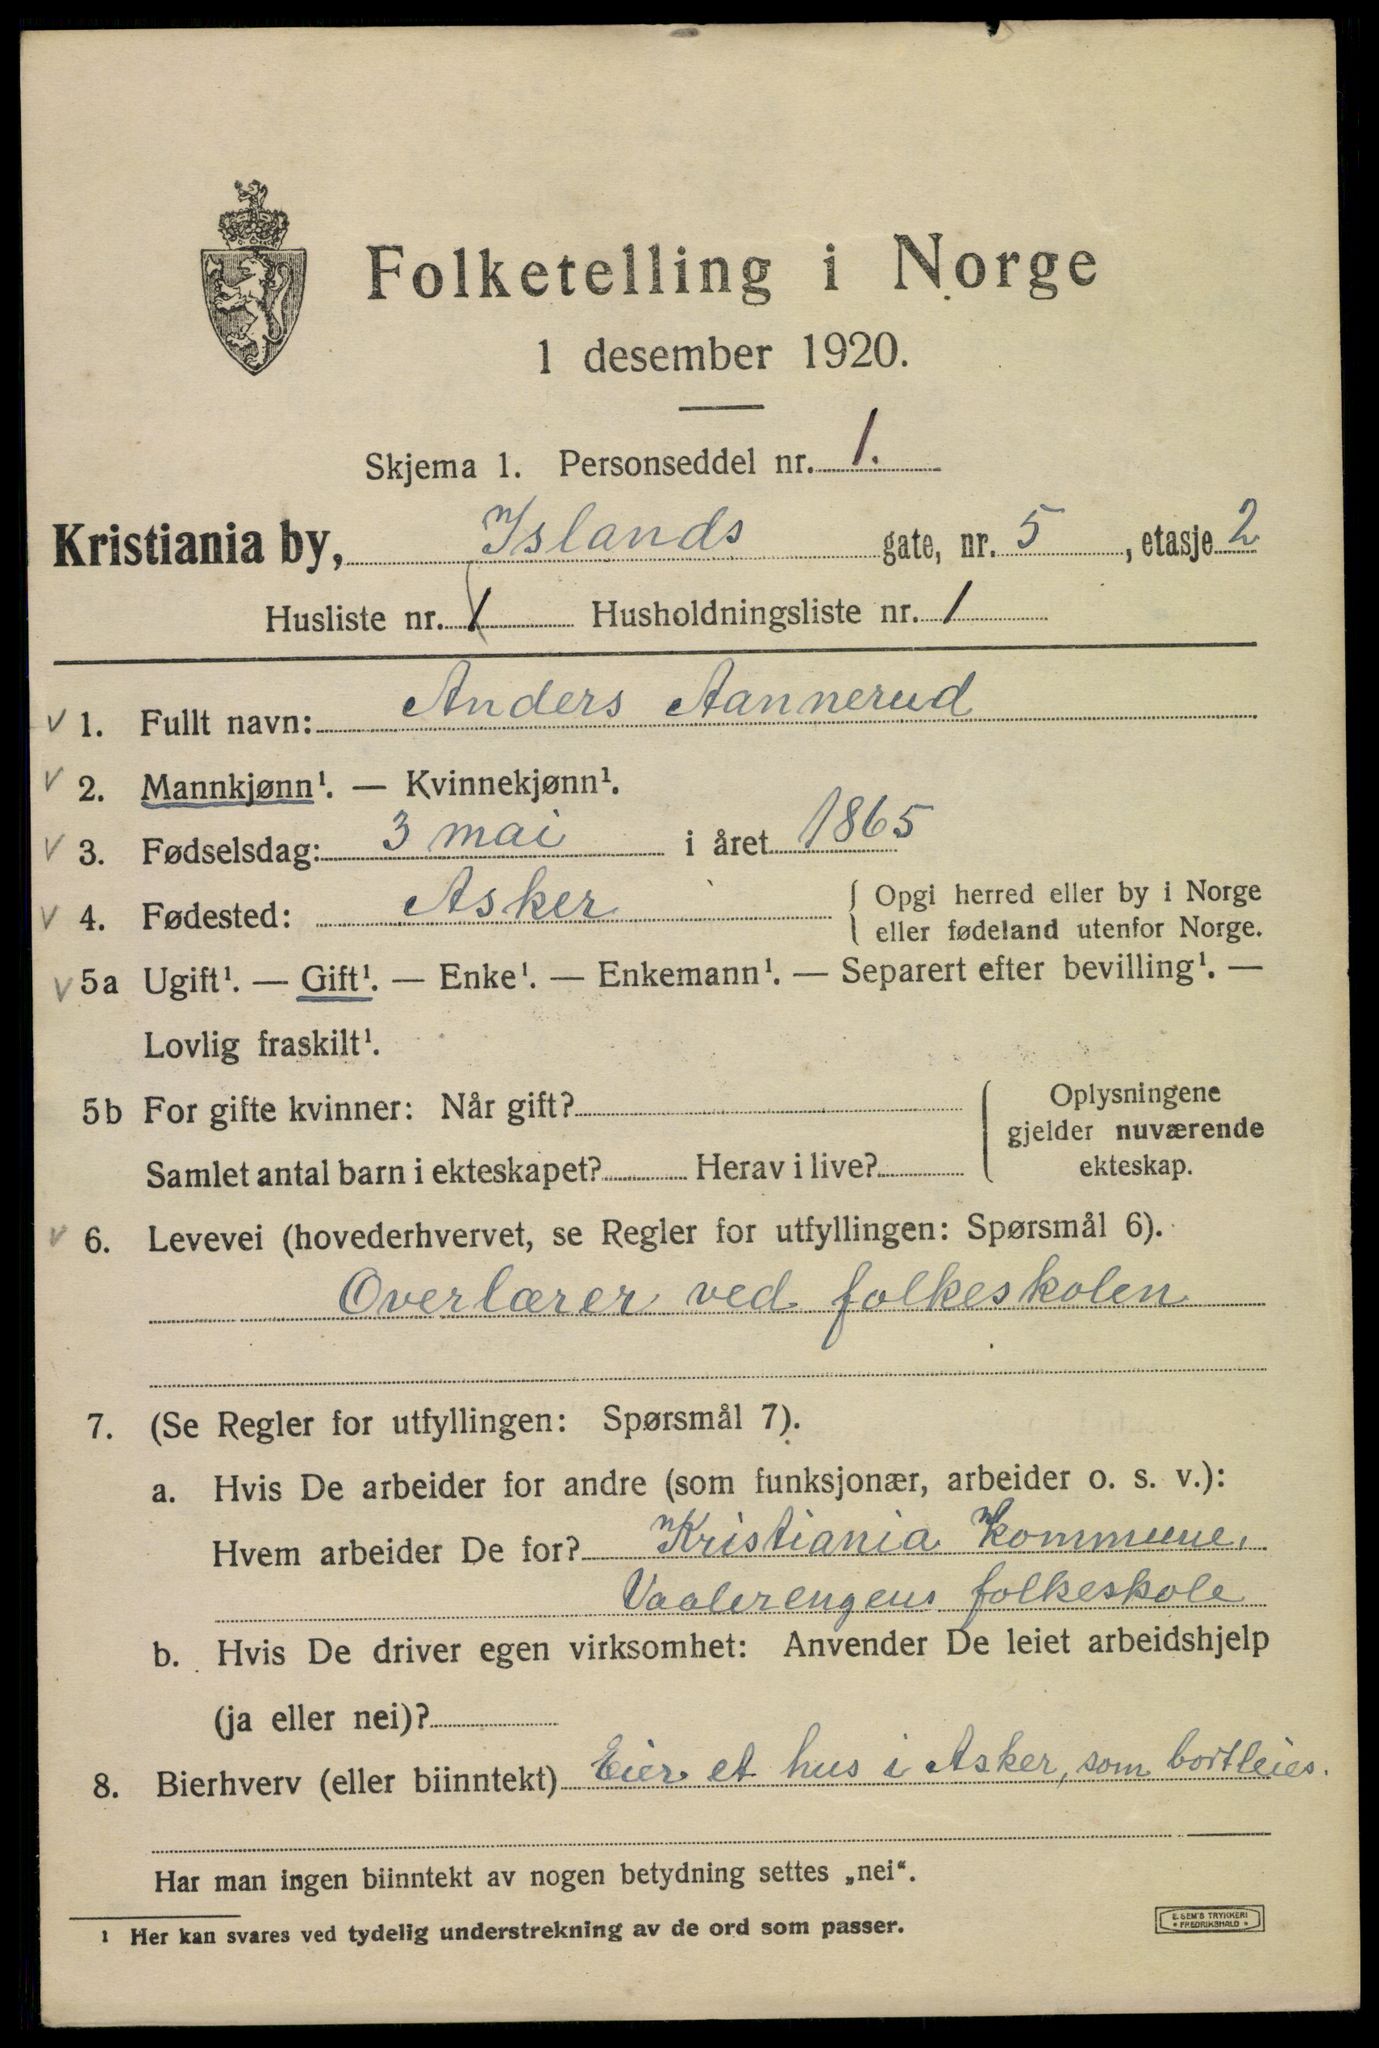 Folketelling i Norge
1 desember 1920.
Skjema 1. Personseddel nr. 1.
Kristiania by, Islands gate, nr. 5, etasje 2
Husliste nr. 1 Husholdningsliste nr. 1
v 1. Fullt navn: Anders Aannerud
v 2. Mannkjønn¹. — Kvinnekjønn¹.
v 3. Fødselsdag: 3 mai i året 1865
v 4. Fødested: Asker { Opgi herred eller by i Norge
eller fødeland utenfor Norge.
v 5a Ugift¹. — Gift¹. — Enke¹. — Enkemann¹. — Separert efter bevilling¹. —
Lovlig fraskilt¹.
5b For gifte kvinner: Når gift?
Samlet antal barn i ekteskapet? Herav i live?
Oplysningene
gjelder nuværende
ekteskap.
v 6. Levevei (hovederhvervet, se Regler for utfyllingen: Spørsmål 6).
Overlærer ved folkeskolen
7. (Se Regler for utfyllingen: Spørsmål 7).
a. Hvis De arbeider for andre (som funksjonær, arbeider o. s. v.):
Hvem arbeider De for? Kristiania kommune,
Vaalerengens folkeskole
b. Hvis De driver egen virksomhet: Anvender De leiet arbeidshjelp
(ja eller nei)?
8. Bierhverv (eller biinntekt) Eier et hus i Asker, som bortleies.
Har man ingen biinntekt av nogen betydning settes „nei“.
¹ Her kan svares ved tydelig understrekning av de ord som passer.
E. SEM'S TRYKKERI
• FREDRIKSHALD •